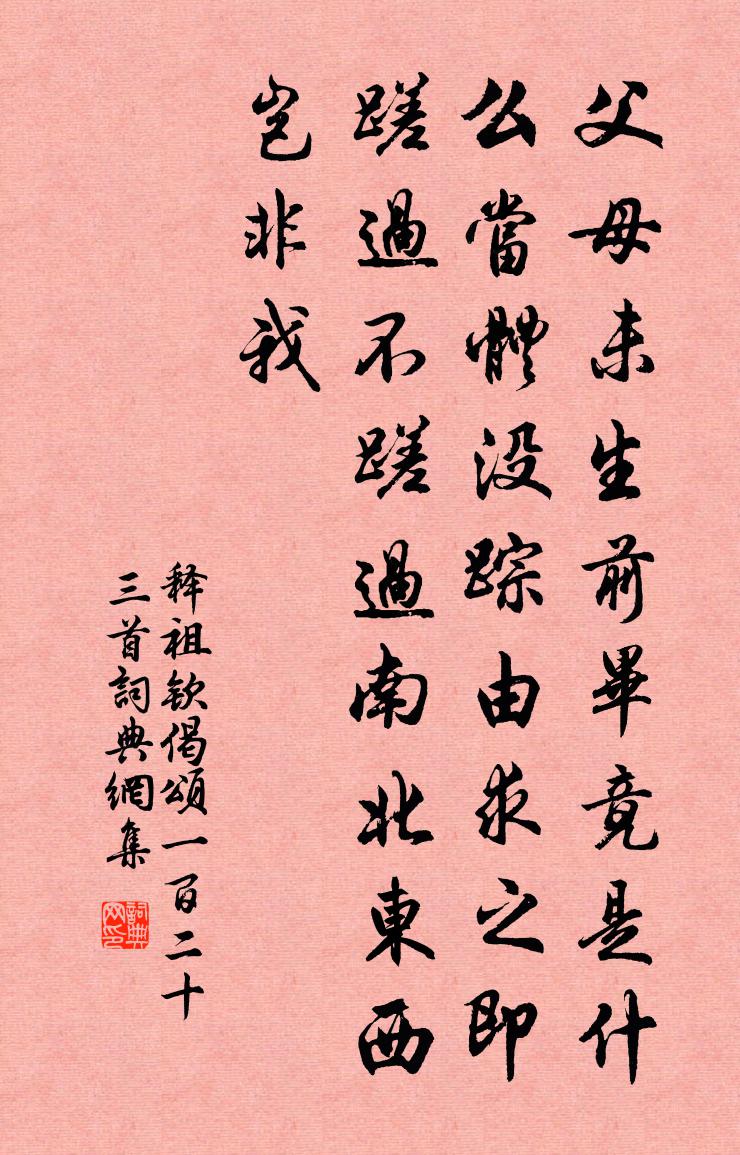 父母未生前畢竟是什
么當體没踪由求之即
蹉過不蹉過南北東西
豈非我
释祖钦偈頌一百二十
三首詞典網集
詞典网印